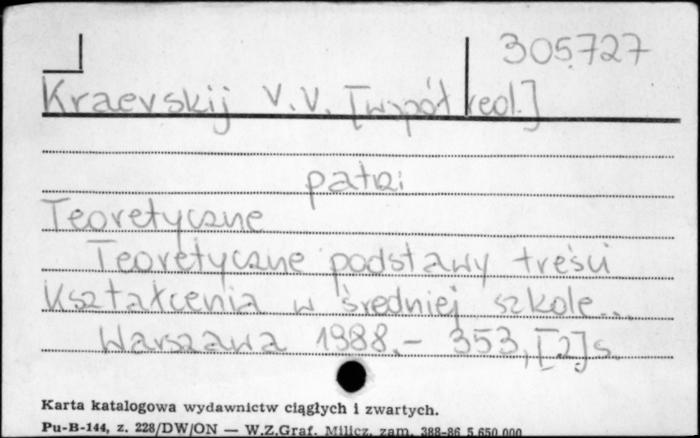 305727
Kraevskij V.V. [współred.]
patrz
Teoretyczne
Teoretyczne podstawy treści
kształcenia w średniej szkole...
Warszawa 1988.- 353,[2]s.
Karta katalogowa wydawnictw ciągłych i zwartych.
Pu-B-144, z. 228/DW/ON — W.Z.Graf. Milicz, zam. 388-86 5.650.000